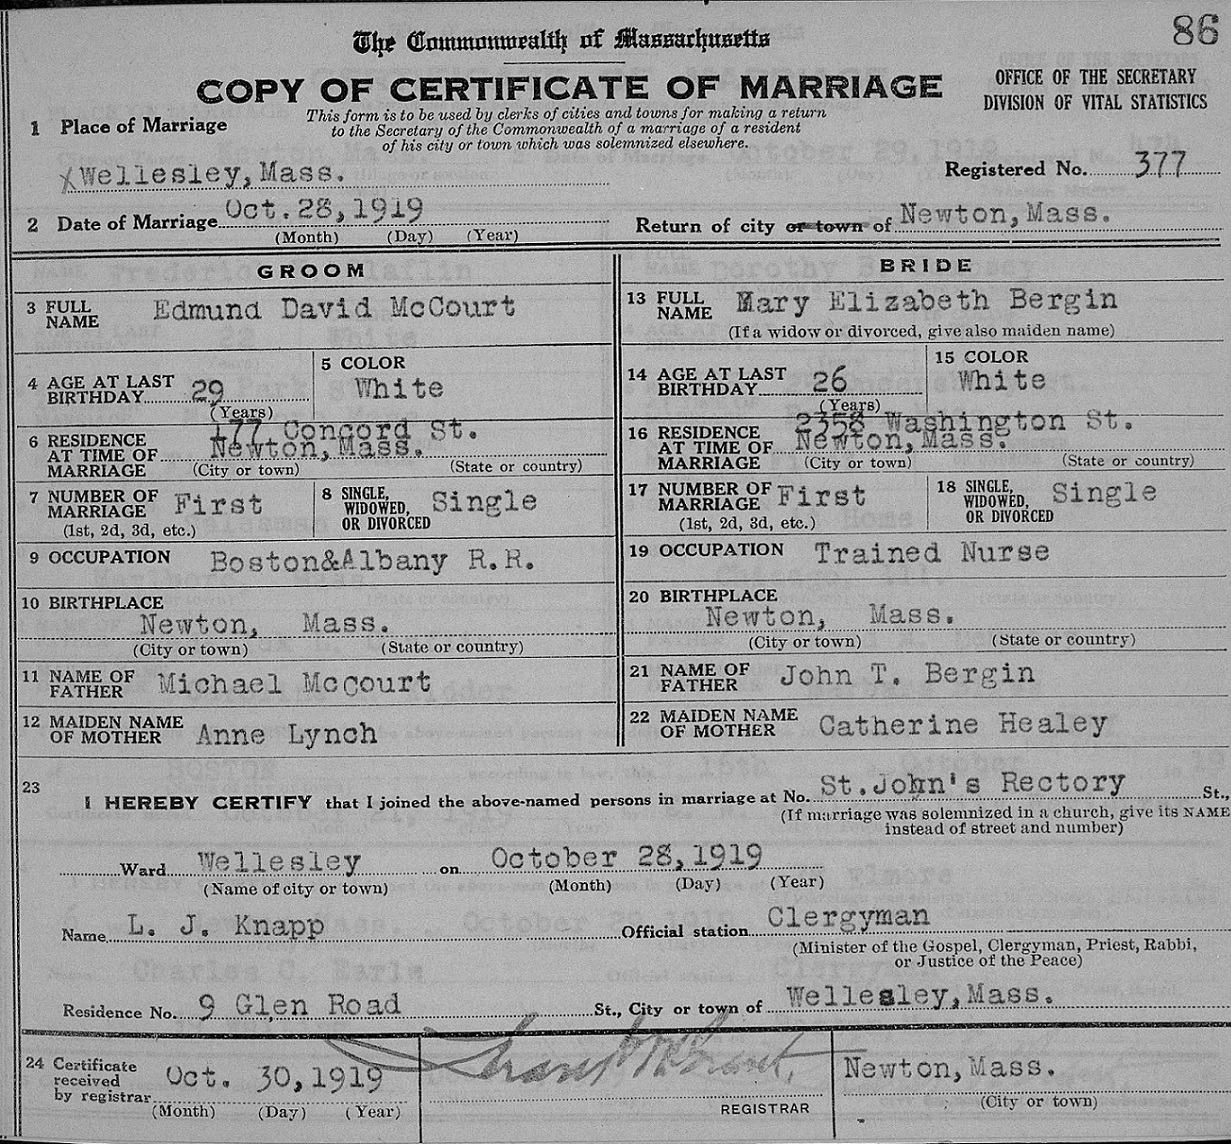 86
The Commonwealth of Massachusetts
COPY OF CERTIFICATE OF MARRIAGE
OFFICE OF THE SECRETARY
DIVISION OF VITAL STATISTICS
This form is to be used by clerks of cities and towns for making a return
to the Secretary of the Commonwealth of a marriage of a resident
of his city or town which was solemnized elsewhere.
1 Place of Marriage
Wellesley, Mass.
Registered No. 377
2 Date of Marriage Oct. 28, 1919
(Month) (Day) (Year)
Return of city or town of Newton, Mass.
GROOM
3 FULL NAME Edmund David McCourt
4 AGE AT LAST BIRTHDAY 29
(Years)
5 COLOR
White
6 RESIDENCE AT TIME OF MARRIAGE 177 Concord St.
Newton, Mass.
(City or town) (State or country)
7 NUMBER OF MARRIAGE First
(1st, 2d, 3d, etc.)
8 SINGLE, WIDOWED, OR DIVORCED Single
9 OCCUPATION Boston&Albany R.R.
10 BIRTHPLACE
Newton, Mass.
(City or town) (State or country)
11 NAME OF FATHER Michael McCourt
12 MAIDEN NAME OF MOTHER Anne Lynch
BRIDE
13 FULL NAME Mary Elizabeth Bergin
(If a widow or divorced, give also maiden name)
14 AGE AT LAST BIRTHDAY 26
(Years)
15 COLOR
White
16 RESIDENCE AT TIME OF MARRIAGE 2358 Washington St.
Newton, Mass.
(City or town) (State or country)
17 NUMBER OF MARRIAGE First
(1st, 2d, 3d, etc.)
18 SINGLE, WIDOWED, OR DIVORCED Single
19 OCCUPATION Trained Nurse
20 BIRTHPLACE
Newton, Mass.
(City or town) (State or country)
21 NAME OF FATHER John T. Bergin
22 MAIDEN NAME OF MOTHER Catherine Healey
23
I HEREBY CERTIFY that I joined the above-named persons in marriage at No. St. John's Rectory St.,
(If marriage was solemnized in a church, give its NAME
instead of street and number)
Ward Wellesley on October 28, 1919
(Name of city or town) (Month) (Day) (Year)
Name L. J. Knapp Official station Clergyman
(Minister of the Gospel, Clergyman, Priest, Rabbi,
or Justice of the Peace)
Residence No. 9 Glen Road St., City or town of Wellesley, Mass.
24 Certificate received by registrar Oct. 30, 1919
(Month) (Day) (Year)
REGISTRAR
Newton, Mass.
(City or town)